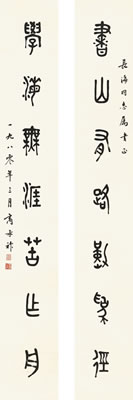 書山有路勤為徑
長海同志屬書正
學海無涯苦作舟
一九八零年三月商承祚